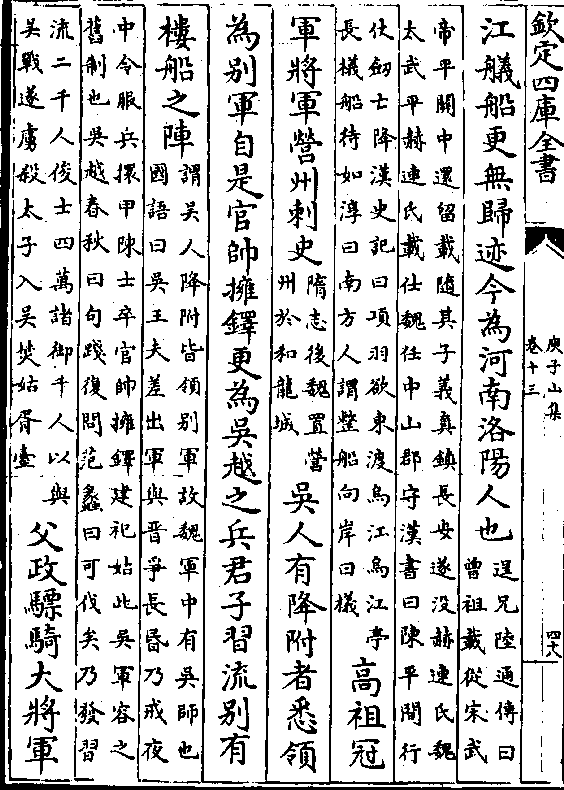 欽定四庫全書
庾子山集
卷十三
江艤船更無歸迹今為河南洛陽人也
逞兄陸通傳曰
曾祖載從宋武
帝平關中還留載隨其子義真鎮長安遂没赫連氏魏
太武平赫連氏載仕魏任中山郡守漢書曰陳平間行
仗劒士降漢史記曰項羽欲東渡烏江烏江亭
長檥船待如淳曰南方人謂整船向岸曰檥
高祖冠
軍將軍營州刺史
隋志後魏置營
州於和龍城
吳人有降附者悉領
為别軍自是官帥擁鐸更為吳越之兵君子習流别有
樓船之陣
謂吳人降附皆領别軍故魏軍中有吳師也
國語曰吳王夫差出軍與晉爭長昏乃戒夜
中令服兵擐甲陳士卒官帥擁鐸建祀姑此吳軍容之
舊制也吳越春秋曰句踐復問范蠡曰可伐矣乃發習
流二千人俊士四萬諸御千人以與
吳戰遂虜殺太子入吳焚姑胥臺
父政驃騎大將軍